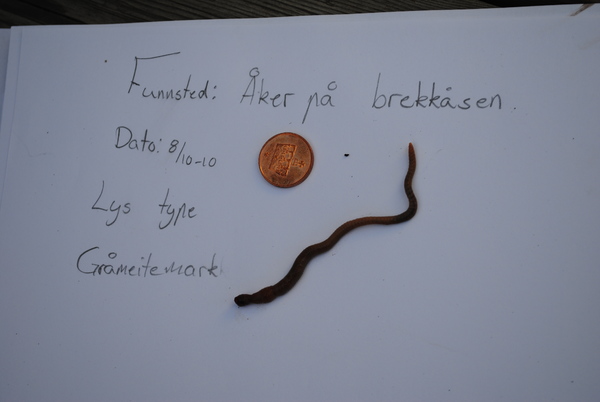 Funnsted: Åker på brekkåsen.
Dato: 8/10-10
Lys type
Gråmeitemark